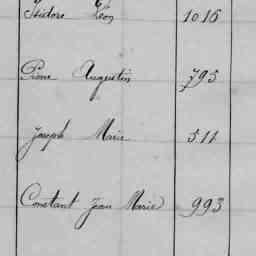 Isidore Léon 1016
Pierre Augustin 795
Joseph Marie 511
Constant Jean Marie 993